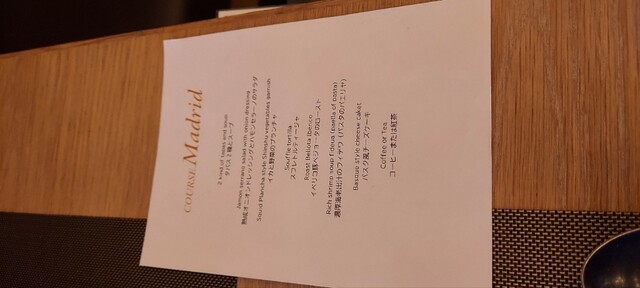 COURSE Madrid
2 kind of tapas and soup
タパス2種とスープ
Jamon serrano salad with onion dressing
熟成オニオンドレッシングとハモンセラーノのサラダ
Squid Plancha style Shinshu vegetables garnish
イカと野菜のプランチャ
Souffle tortilla
スフレトルティージャ
Roast Bellota Iberico
イベリコ豚ベジョータのロースト
Rich shrimp soup Fideua (paella of pasta)
濃厚海老出汁のフィデワ(パスタのパエリヤ)
Basque style cheese cake
バスク風チーズケーキ
Coffee or Tea
コーヒーまたは紅茶